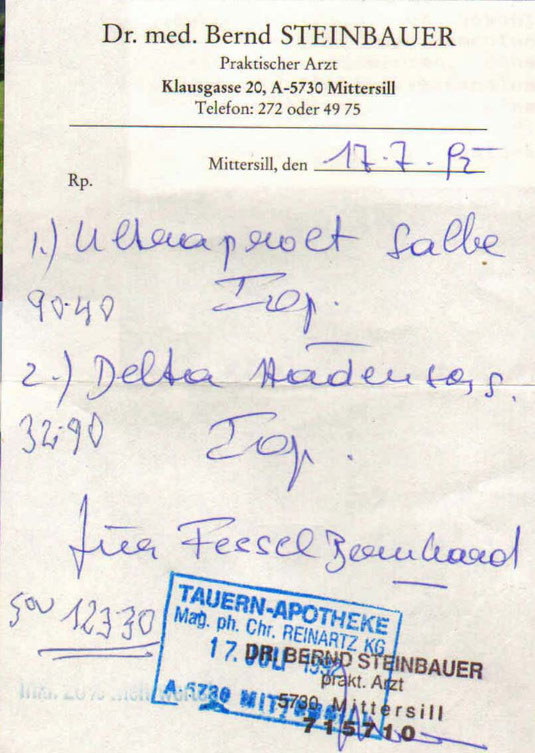 Dr. med. Bernd STEINBAUER
Praktischer Arzt
Klausgasse 20, A-5730 Mittersill
Telefon: 272 oder 49 75
Mittersill, den 17.7.95
Rp.
1.) Ultraproct Salbe
90.40 I op.
2.) Delta Hädensa S.
32.90 I op.
für Fessel Bernhard
SOU 123.30
TAUERN-APOTHEKE
Mag. ph. Chr. REINARTZ KG
17. JULI
A-5730 MITTERSILL
DR. BERND STEINBAUER
prakt. Arzt
5730 Mittersill
715710